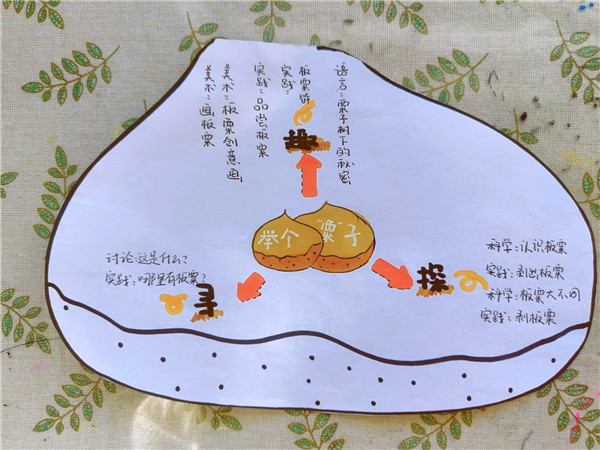 语言:栗子树下的秘密
实践:
板栗
实践:品尝板栗
美术:板栗创意画
美术:画板栗
趣
举个“栗”子
讨论:这是什么?
实践:哪里有板栗?
寻
探
科学:认识板栗
实践:剥出板栗
科学:板栗大不同
实践:剥板栗